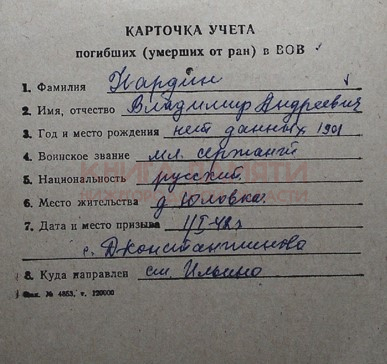 КАРТОЧКА УЧЕТА
погибших (умерших от ран) в ВОВ
1. Фамилия Кардин
2. Имя, отчество Владимир Андреевич
3. Год и место рождения нет данных 1901
4. Воинское звание мл. сержант
5. Национальность русский
6. Место жительства д. Юловка
7. Дата и место призыва
с. Дконстантиново
8. Куда направлен ст. Ильино
Зак. № 4853, т. 220000
КНИГА ПАМЯТИ
НИЖЕГОРОДСКОЙ ОБЛАСТИ